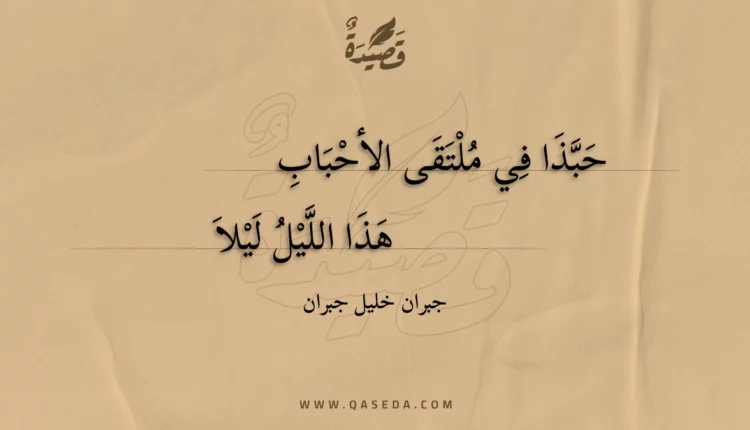 قَصِيدَةٌ
حَبَّذَا فِي مُلْتَقَى الأحْبَابِ
هَذَا اللَّيْلُ لَيْلاَ
جبران خليل جبران
WWW.QASEDA.COM